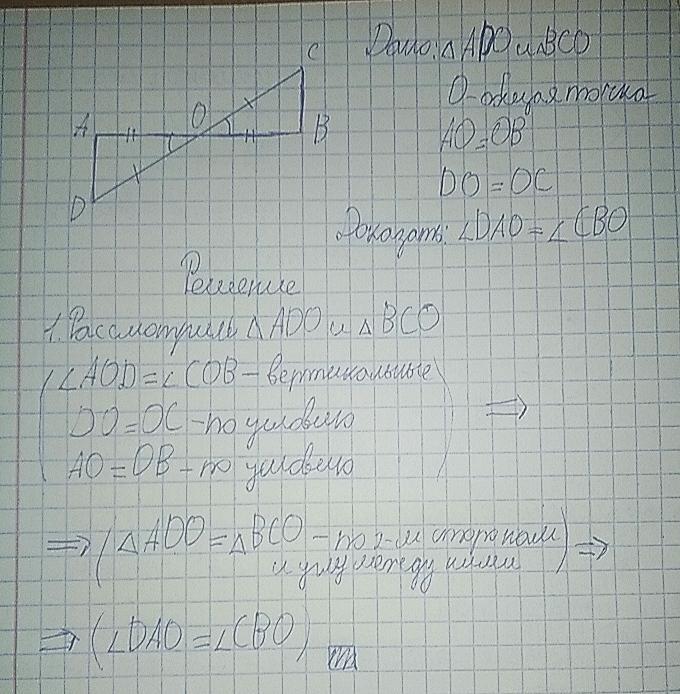 C
Дано: △ADO и △BCO
O-общая точка
A O B
AO=OB
D
DO=OC
Доказать: ∠DAO=∠CBO
Решение
1. Рассмотрим △ADO и △BCO
(∠AOD=∠COB-вертикальные
DO=OC-по условию
AO=OB-по условию) ⇒
⇒(△ADO=△BCO-по 2-м сторонам
и углу между ними)⇒
⇒(∠DAO=∠CBO)